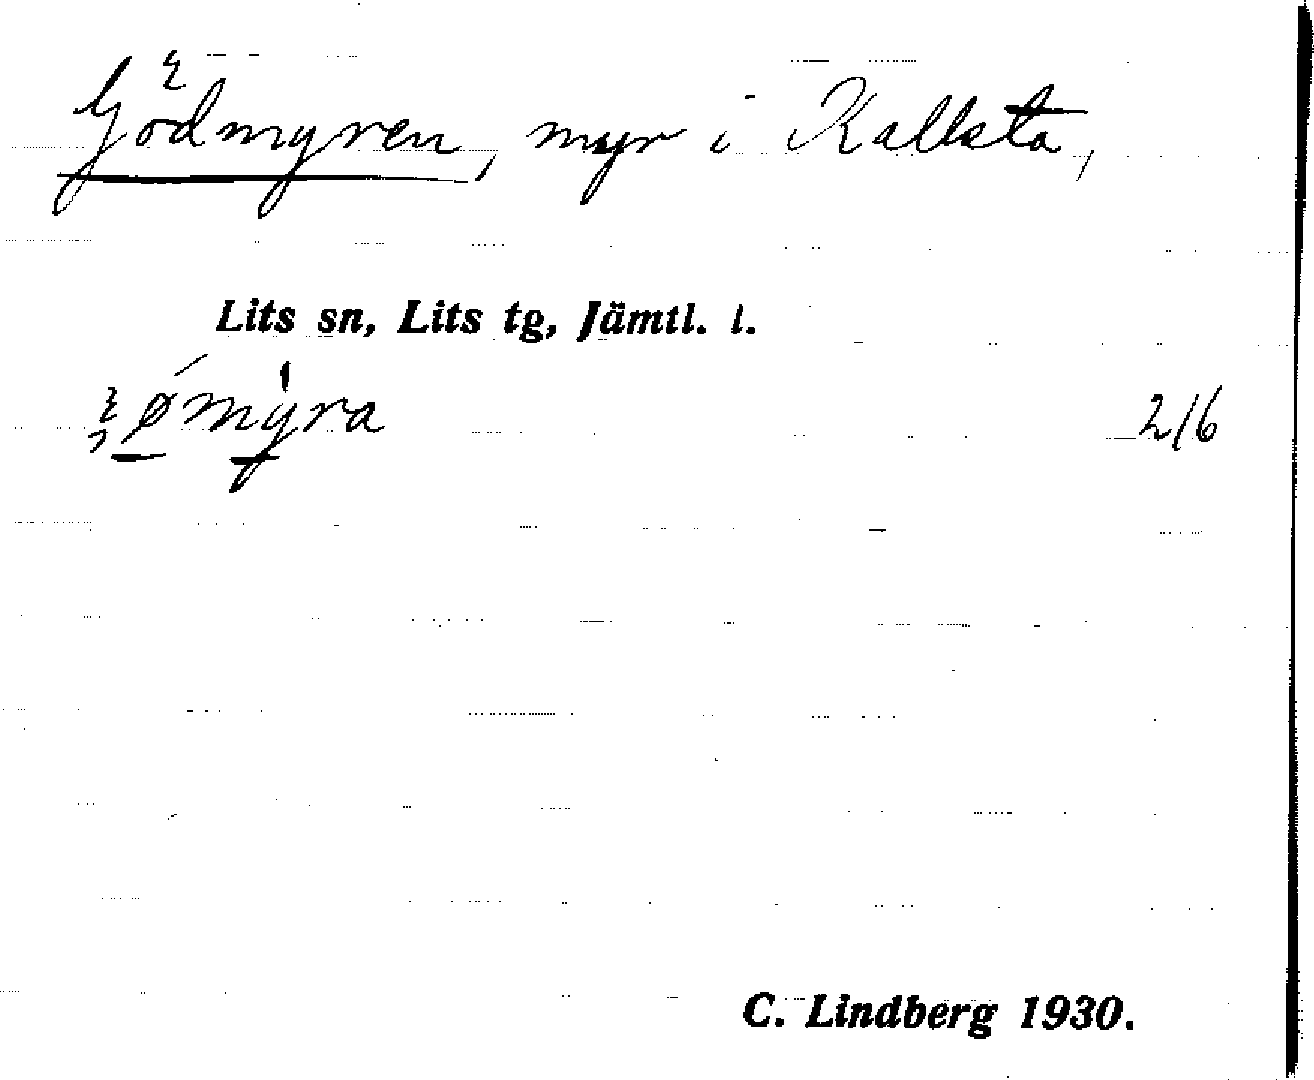 Gödmyren, myr i Kallsta,
Lits sn, Lits tg, Jämtl. l.
ømyra 2/6
C. Lindberg 1930.